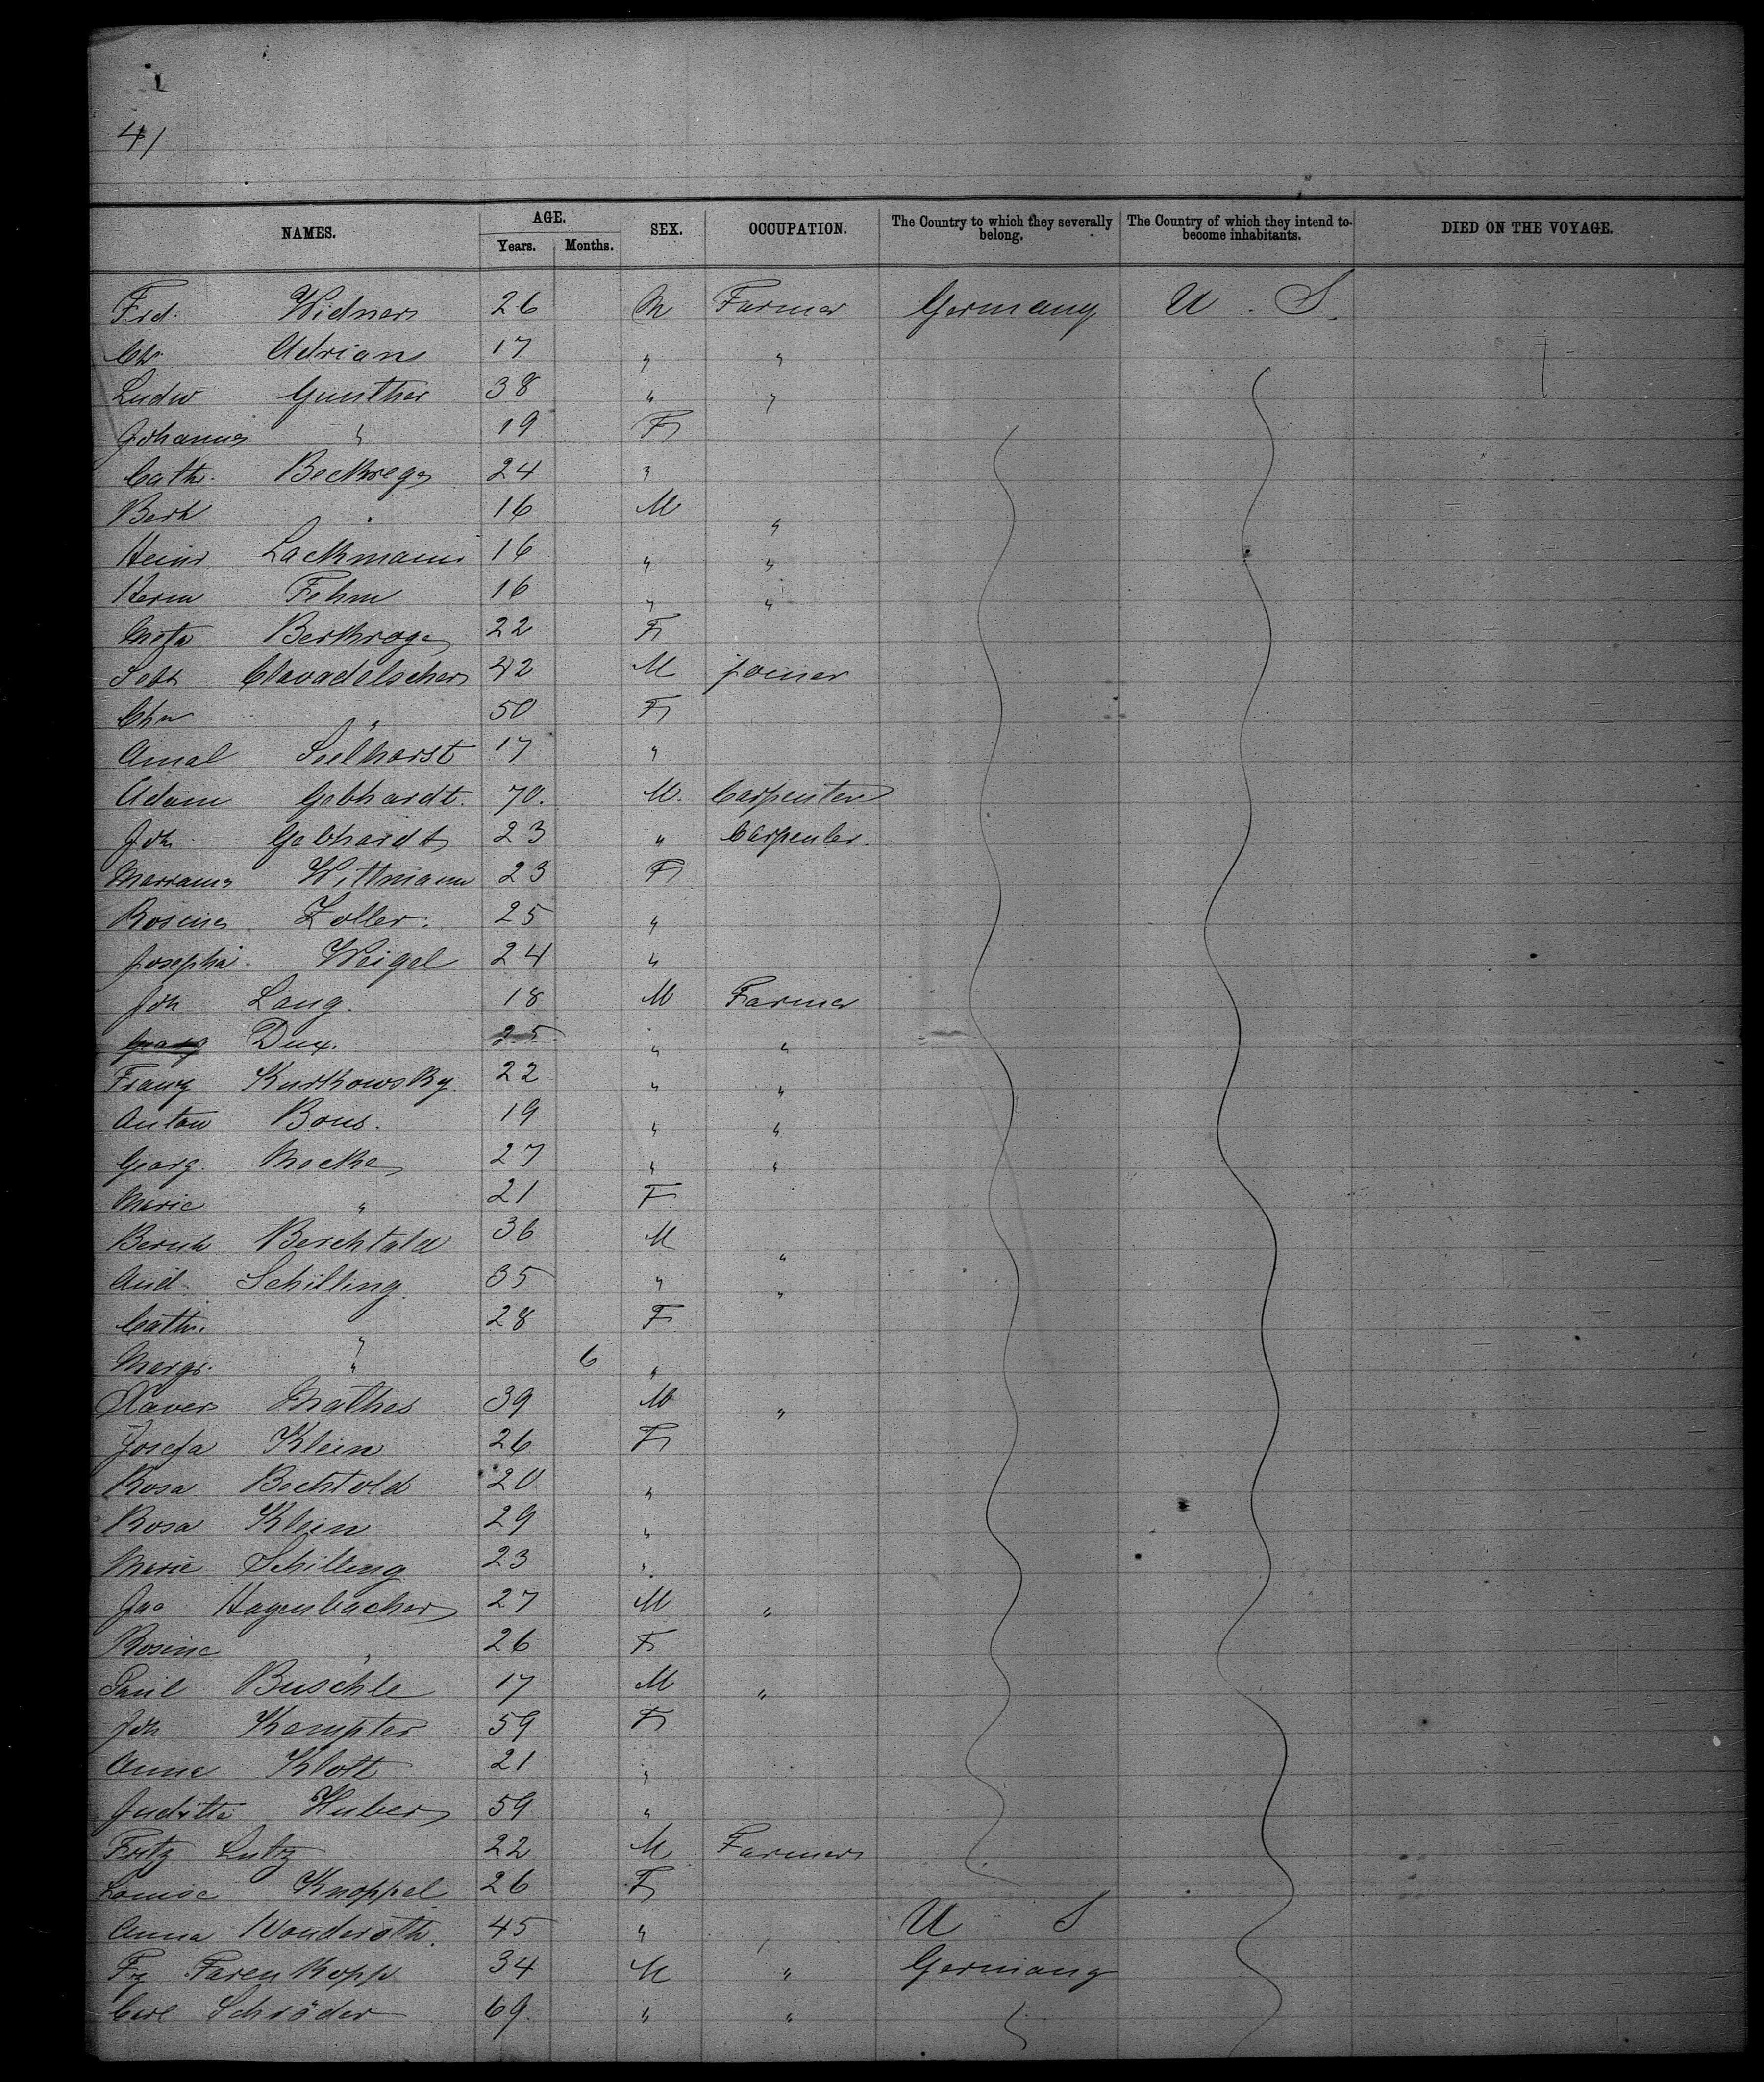 41
NAMES. AGE. SEX. OCCUPATION. The Country to which they severally belong. The Country of which they intend to become inhabitants. DIED ON THE VOYAGE.
Years. Months.
Frd. Widner 26 M Farmer Germany U. S.
Ch. Adrian 17 " "
Ludw Gunther 38 " "
Johanna " 19 F
Cath. 24 "
Berh " 16 M "
Heinr Lackmann 16 " "
Herm Fehm 16 " "
Meta 22 F
Sebt 42 M joiner
Chr " 50 F
Amal Sielhorst 17 "
Adam Gebhardt. 70. M. Carpenter
Joh. Gebhardt 23 " Carpenter.
Marianna Wittmann 23 F
Rosina Zoller. 25 "
Josepha Weigel 24 "
Joh Lang. 18 M Farmer
Georg Dux. 25 " "
Franz Kurkowsky. 22 " "
Anton Bous. 19 " "
Georg. Mocke 27 " "
Marie " 21 F
Bernh Berchtold 36 M "
And. Schilling. 35 " "
Cath. " 28 F
Margr. " 6 "
Xaver Mathes 39 M "
Josefa Klein 26 F
Rosa Bechtold 20 "
Rosa Klein 29 "
Marie Schilling 23 "
Jac Hagenbacher 27 M "
Rosine " 26 F
Paul Buschle 17 M "
Joh Kempter 59 F
Anna Klott 21 "
Juditta Huber 59 "
Fritz Lutz 22 M Farmer
Louise Knoppel 26 F
Anna Wonderoth. 45 " U S
Fz Farenkopp 34 M " Germany
Carl Schröder 69. " "